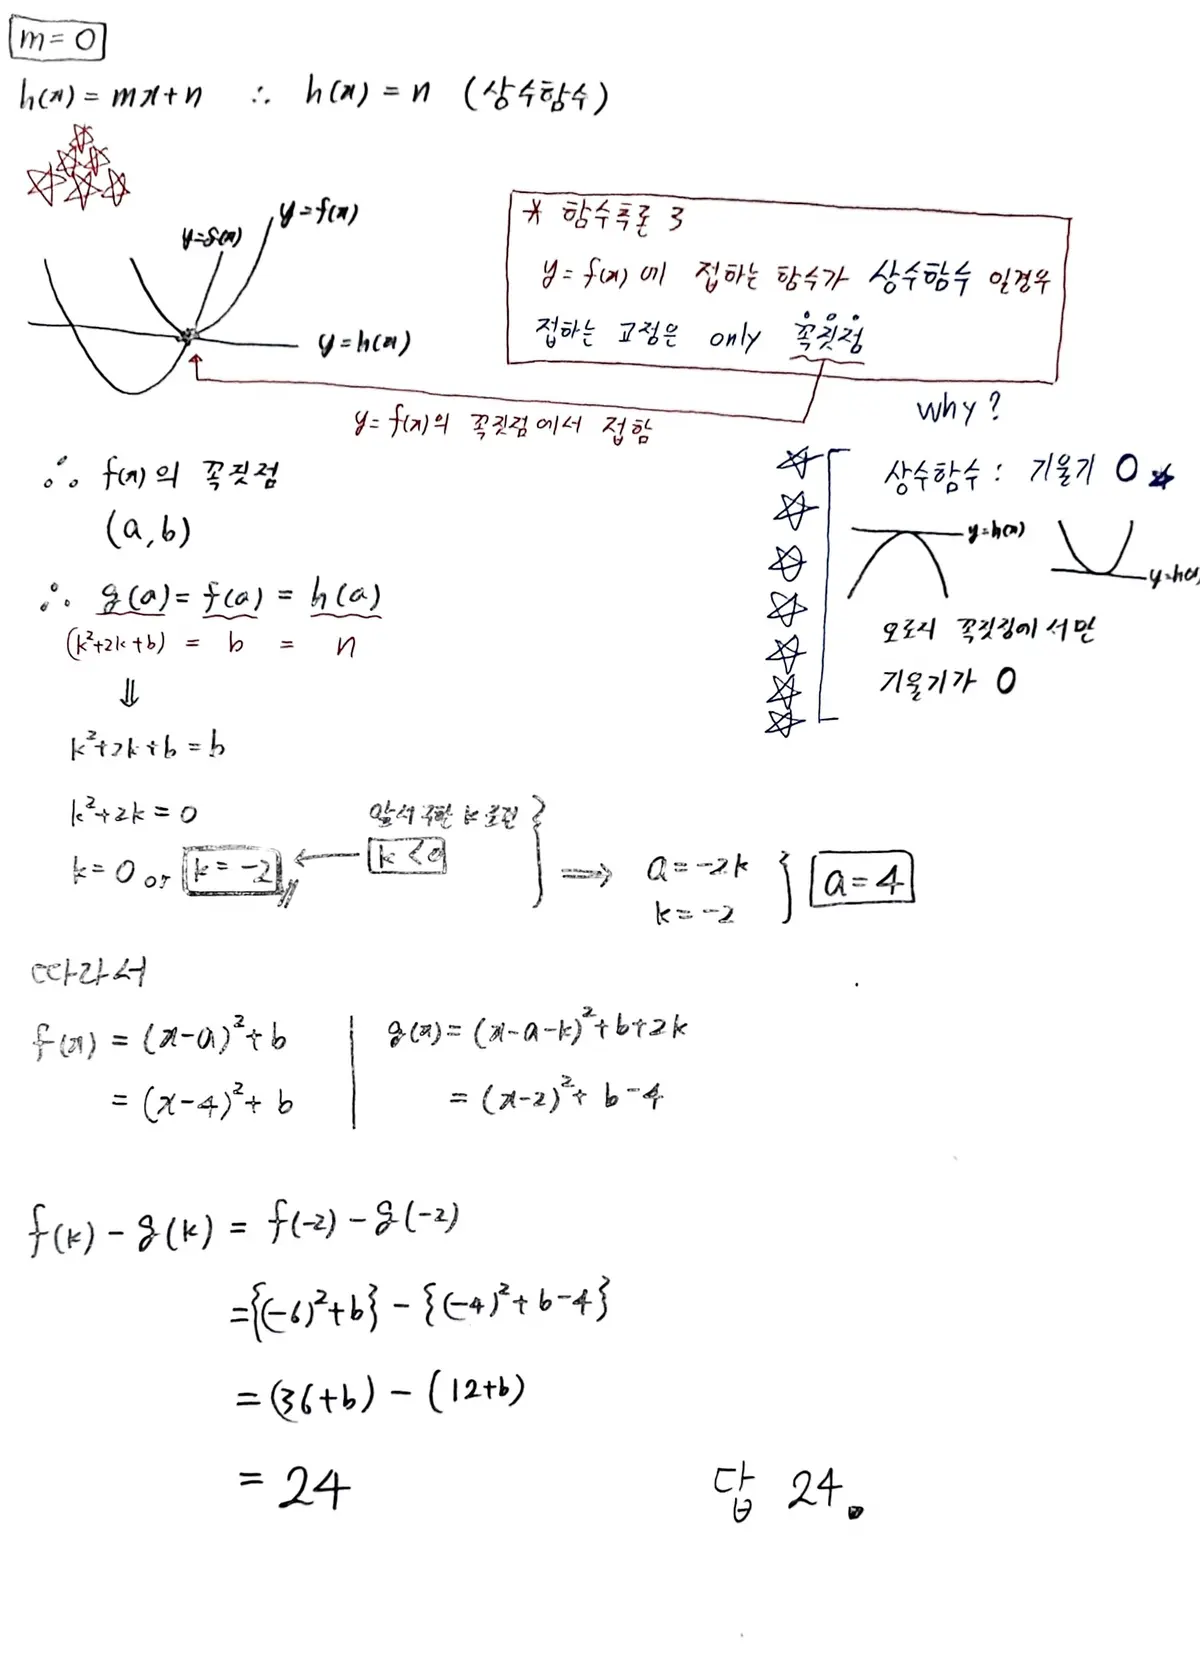 m=0
h(x) = mx+n ∴ h(x) = n (상수함수)
y=f(x)
y=g(x)
y=h(x)
* 함수추론 3
y=f(x)에 접하는 함수가 상수함수 일경우
접하는 교점은 only 꼭짓점
y=f(x)의 꼭짓점에서 접함
Why?
상수함수 : 기울기 0
y=h(x)
y=h(x)
오로지 꼭짓점에서만
기울기가 0
∴ f(x)의 꼭짓점
(a,b)
∴ g(a) = f(a) = h(a)
(k²+2k+b) = b = n
⇓
k²+2k+b = b
k²+2k = 0
k=0 or k=-2 ← k<0
앞서 구한 k 조건
⇒ a=-2k
k=-2
a=4
따라서
f(x) = (x-a)²+b
= (x-4)²+b
g(x) = (x-a-k)²+b+2k
= (x-2)²+b-4
f(k)-g(k) = f(-2)-g(-2)
= {(-6)²+b} - {(-4)²+b-4}
= (36+b) - (12+b)
= 24
답 24.